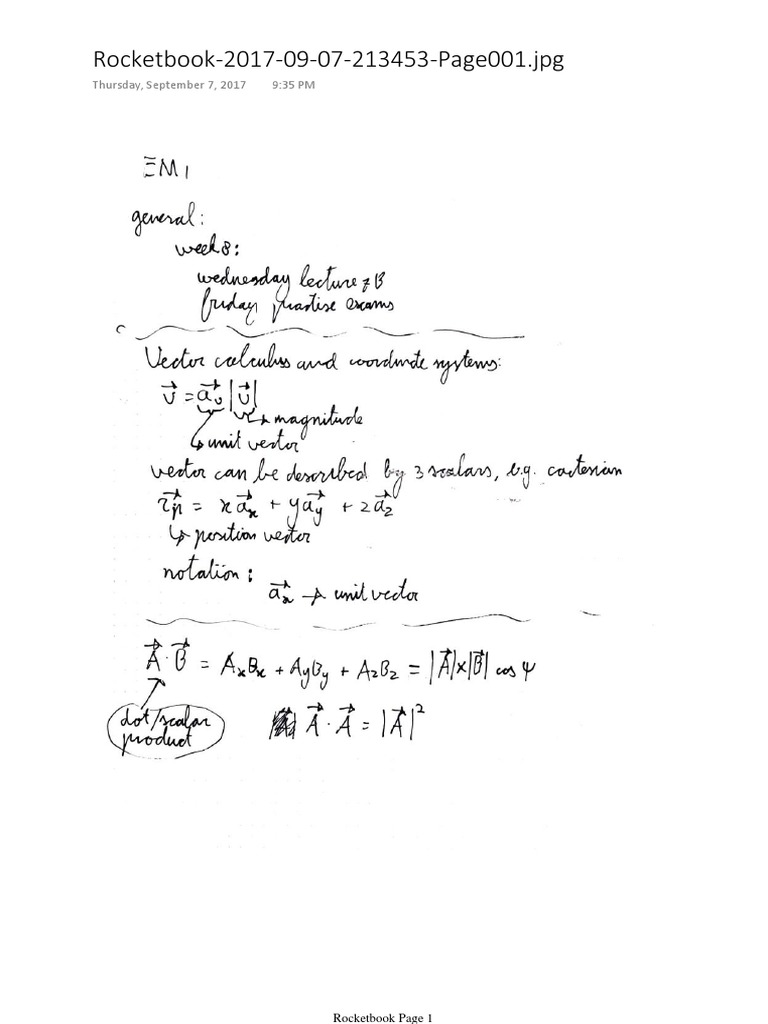 Rocketbook-2017-09-07-213453-Page001.jpg
Thursday, September 7, 2017 9:35 PM
EM 1
general:
week 8:
wednesday lecture 7B
friday practise exams
Vector calculus and coordinate systems:
v⃗ = a⃗ᵥ |v⃗|
↳ magnitude
↳ unit vector
vector can be described by 3 scalars, e.g. cartesian
r⃗ₚ = x a⃗ₓ + y a⃗_y + z a⃗_z
↳ position vector
notation:
a⃗ₓ → unit vector
A⃗ · B⃗ = AₓBₓ + A_yB_y + A_zB_z = |A⃗|x|B⃗| cos ψ
dot/scalar
product
A⃗ · A⃗ = |A⃗|²
Rocketbook Page 1